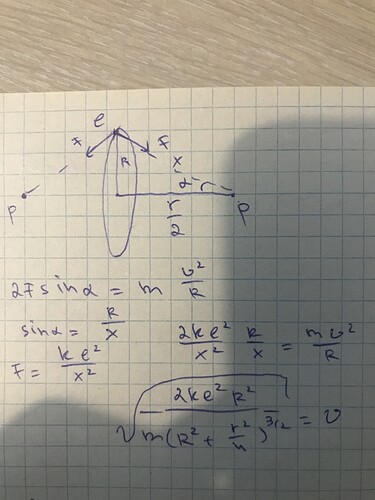 e
F F
R x
α r
p r/2 p
2F sin α = m υ²/R
sin α = R/x 2ke²/x² R/x = mυ²/R
F = ke²/x²
√(2ke²R²/m(R² + r²/4)^3/2) = υ